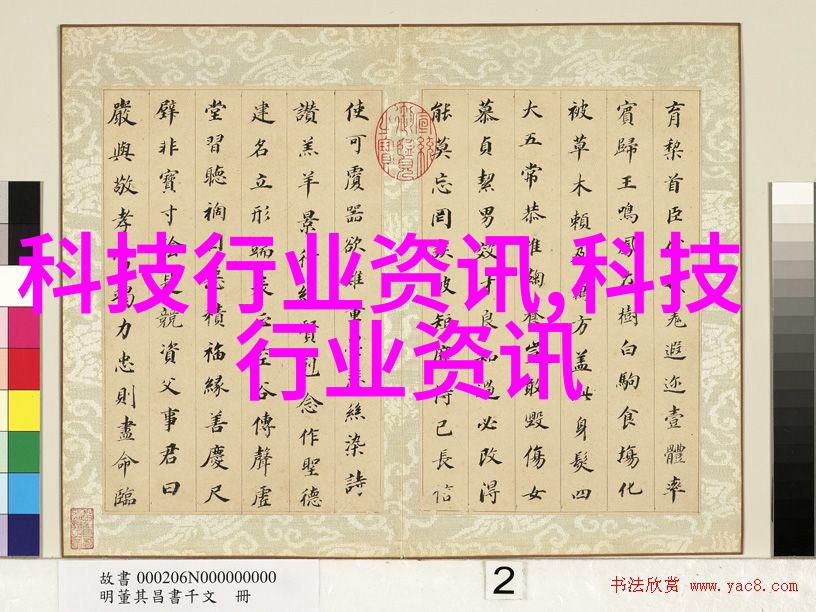 育黎首臣遐迩壹體率
賓歸王鳴鳳樹白駒食場化
被草木賴方蓋此身髮四
大五常恭惟鞠敢毀傷女
慕貞絜男效才良知過必改得
能莫忘罔彼短己長信
使可覆器欲難絲染詩
讚羔羊景行賢念作聖德
建名立形端谷傳聲虛
堂習聽禍積福緣善慶尺
璧非寶寸競資父事君曰
嚴與敬孝力忠則盡命臨
科技行业资讯,科技
行业资讯
故書 000206N000000000
明董其昌書千文 冊
2
书法欣赏 www.yac8.com